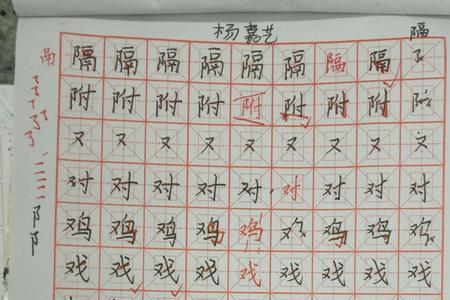 杨嘉艺 隔
隔 隔 隔 隔 隔 隔 隔 隔 隔
附 附 附 附 附 附 附 附 附
又 又 又 又 又 又 又 又 又
对 对 对 对 对 对 对 对 对
鸡 鸡 鸡 鸡 鸡 鸡 鸡 鸡 鸡
戏 戏 戏 戏 戏 戏 戏 戏 戏